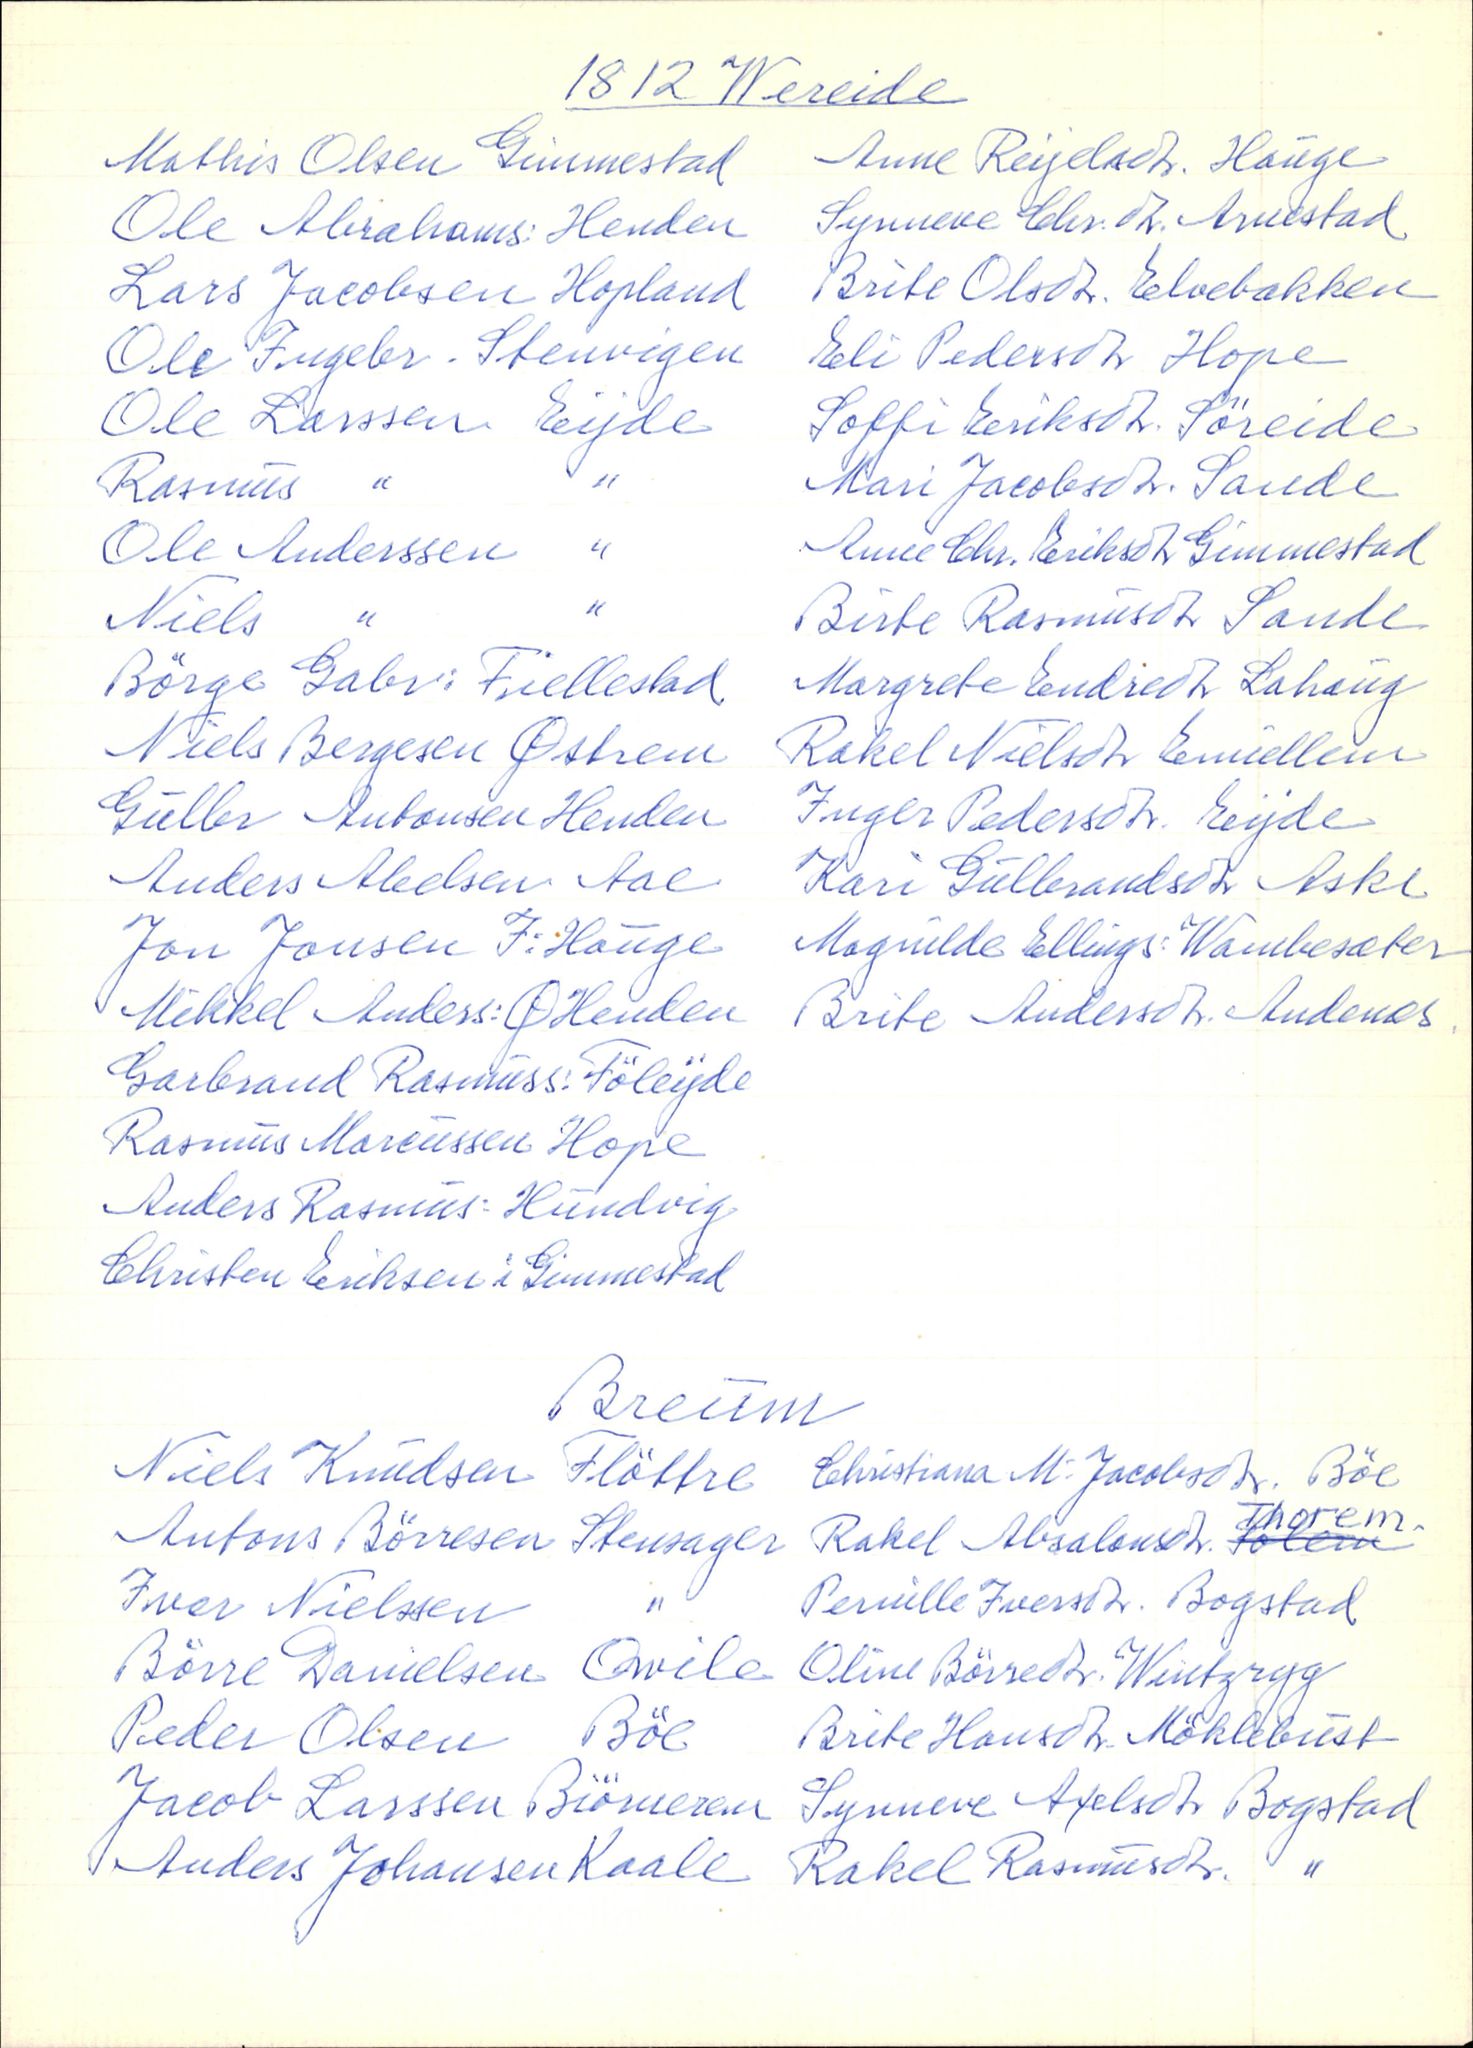 1812 Wereide
Mathis Olsen Gimmestad
Ole Abrahams: Henden
Lars Jacobsen Hopland
Ole Ingebr. Stenvigen
Ole Larssen Eijde
Rasmus " "
Ole Anderssen "
Niels " "
Börge Gabr: Fiellestad
Niels Bergesen Østrem
Gulbr Antonsen Henden
Anders Abelsen Aae
Jon Jonsen F: Hauge
Mikkel Anders: Ø Henden
Garbrand Rasmuss: Föleÿde
Rasmus Marcussen Hope
Anders Rasmus: Hundvig
Christen Eriksen i Gimmestad
Anne Reijelsdtr. Hauge
Synneve Chr. dtr. Arnestad
Brite Olsdtr. Elvebakken
Eli Pedersdtr Hope
Soffi Eriksdtr. Söreide
Mari Jacobsdtr. Sande
Anne Chr. Eriksdtr Gimmestad
Birte Rasmusdtr Sande
Margrete Endredtr Lahaug
Rakel Nielsdtr Emiellem
Inger Pedersdtr. Eijde
Kari Gulbrandsdtr Aske
Magnilde Ellings: Wambesæter
Brite Andersdtr. Andenæs.
Breum
Niels Knudsen Flöttre
Antons Börresen Stensager
Iver Nielssen "
Börre Danielsen Qwile
Peder Olsen Böe
Jacob Larssen Biömerem
Anders Johansen Kaale
Christiana M. Jacobsdtr. Böe
Rakel Absalonsdtr. Thorem.
Pernille Iversdtr. Bogstad
Oline Börredtr. Wintzryg
Brite Hansdtr. Möklebust
Synneve Axelsdtr Bogstad
Rakel Rasmusdtr. "